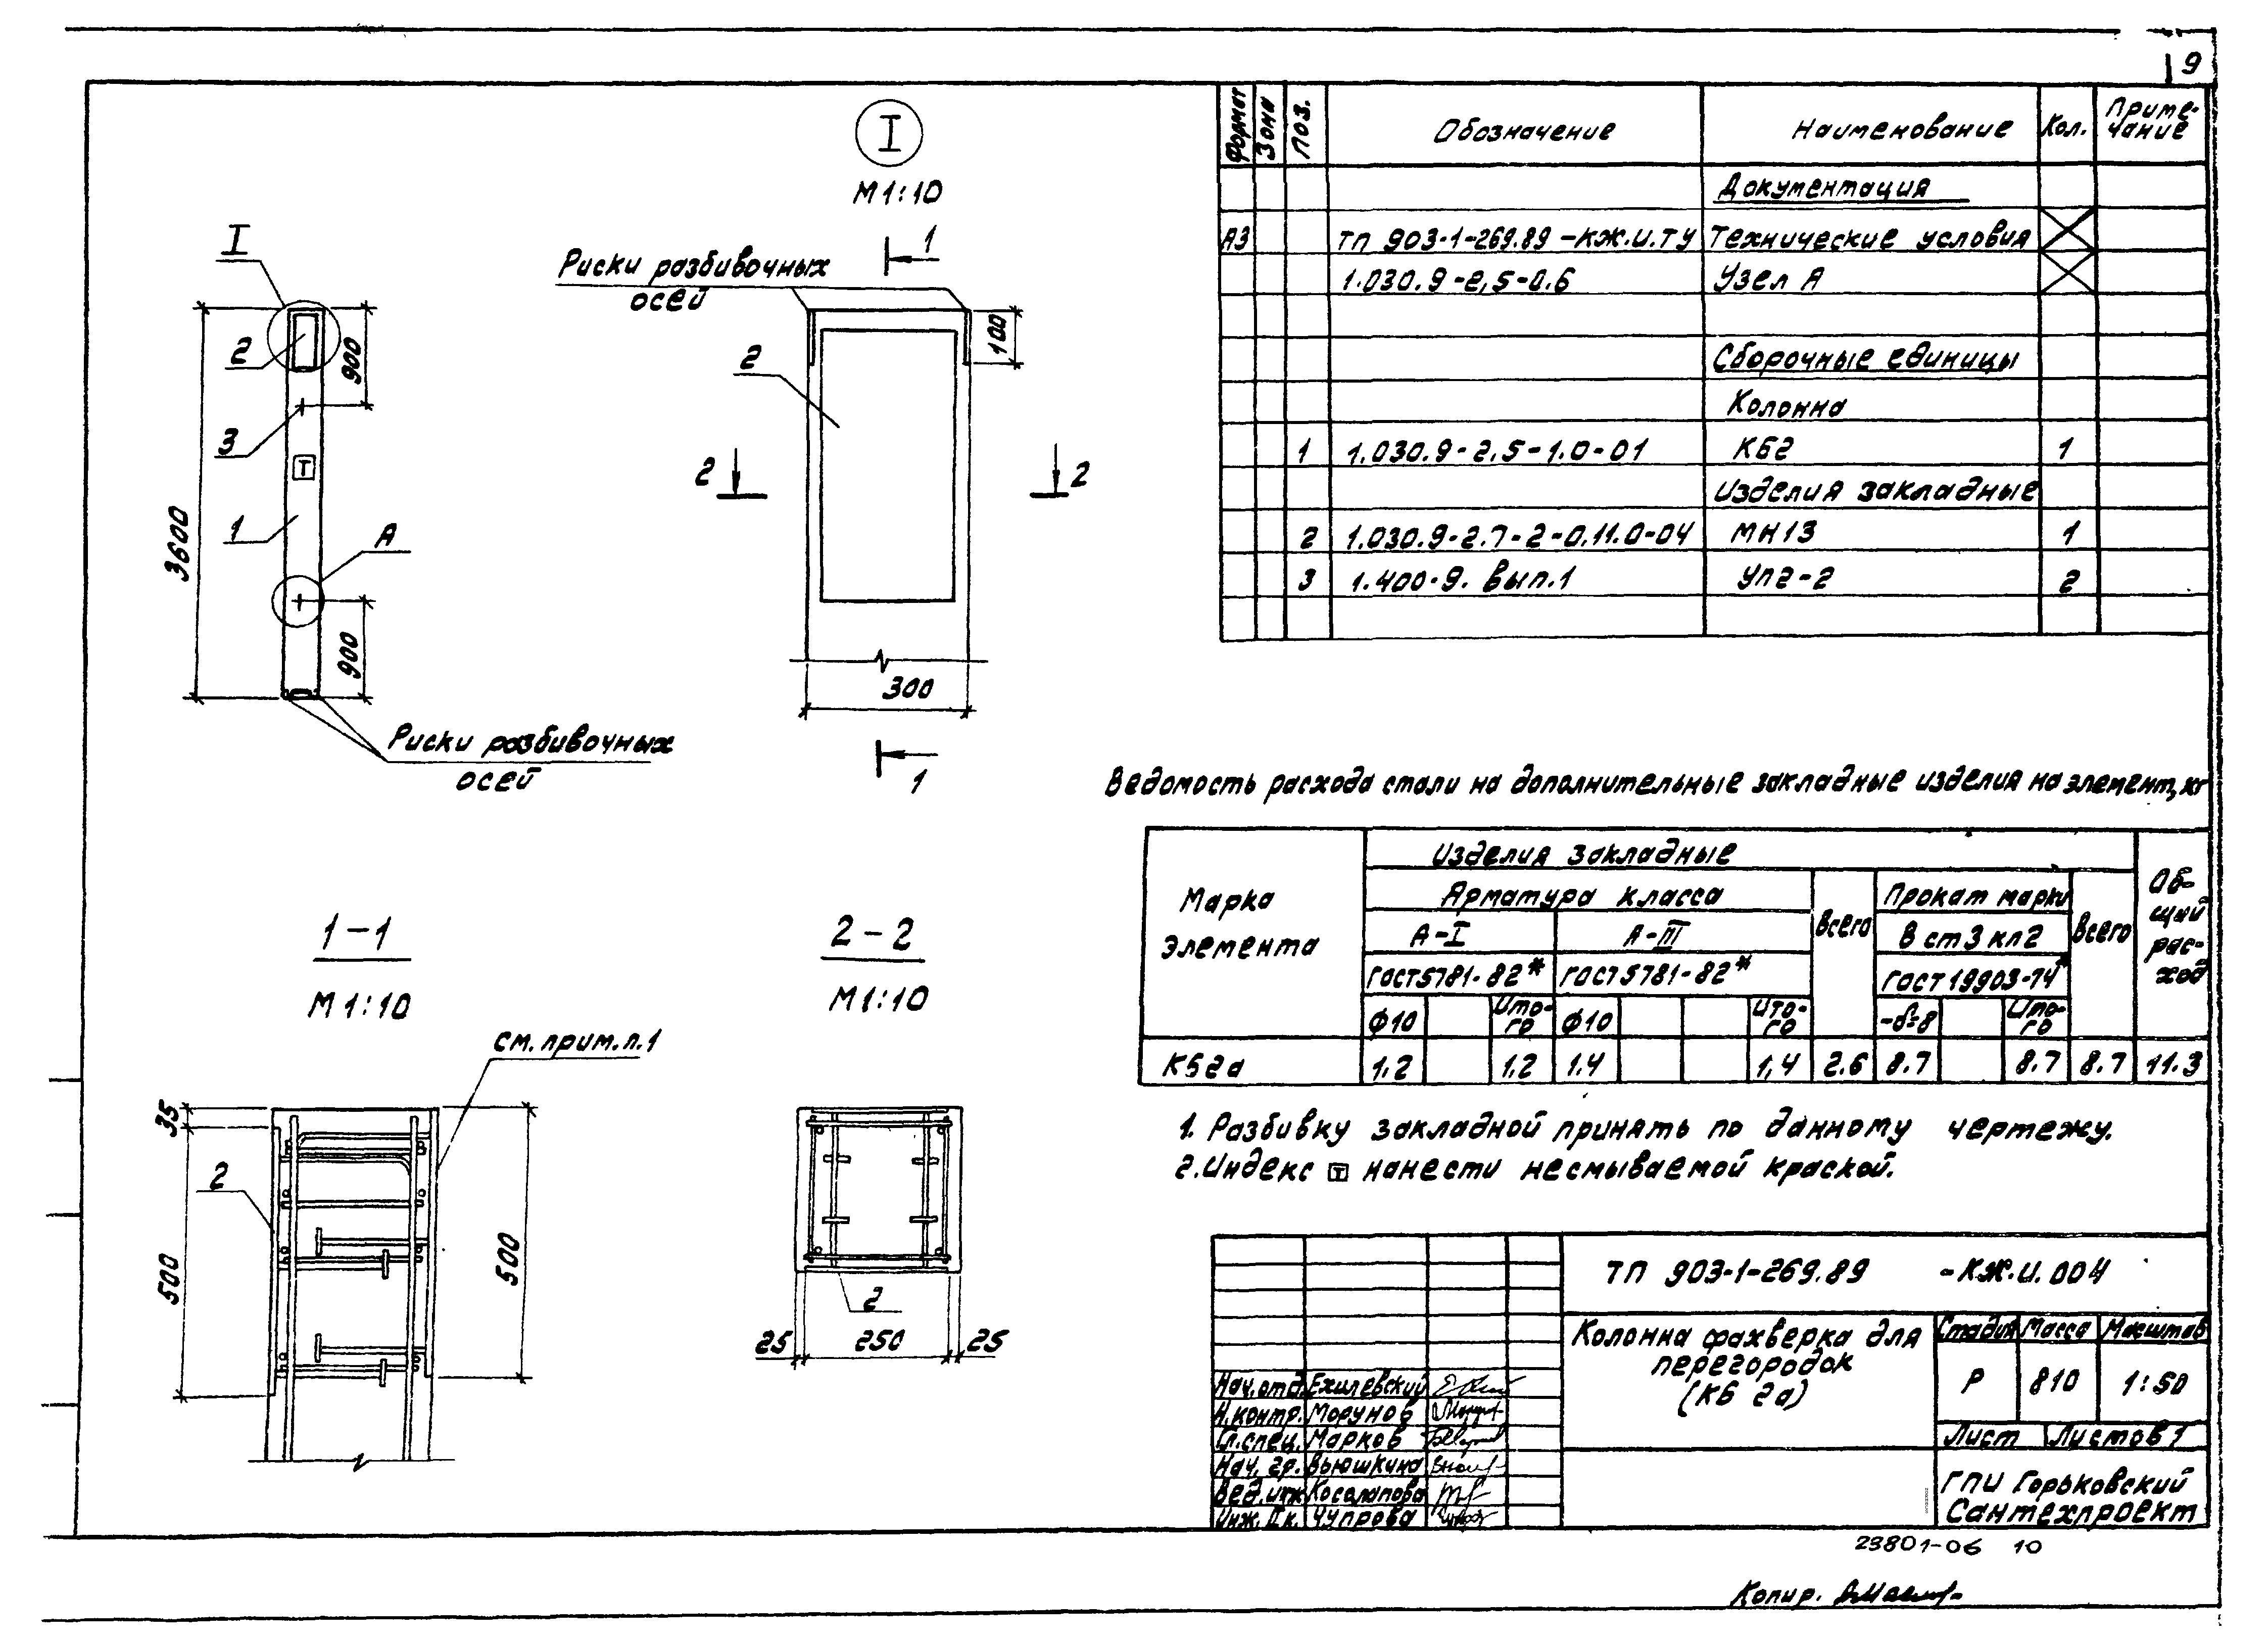 9
Формат Зона Поз. Обозначение Наименование Кол. Приме-
чание
Документация
А3 ТП 903-1-269.89 -КЖ.И.ТУ Технические условия
1.030.9-2,5-0.6 Узел А
Сборочные единицы
Колонна
1 1.030.9-2.5-1.0-01 КБ2 1
Изделия закладные
2 1.030.9-2.7-2-0.11.0-04 МН13 1
3 1.400-9. Вып.1 УП2-2 2
I
2
900
3
Т
1
А
3600
900
Риски разбивочных
осей
I
М1:10
1
Риски разбивочных
осей
100
2
2
2
300
1
Ведомость расхода стали на дополнительные закладные изделия на элемент, кг
Марка
элемента
Изделия закладные
Об-
щий
рас-
ход
Арматура класса
Всего
Прокат марки
Всего
А-I А-III
В ст3 кп2
ГОСТ5781-82* ГОСТ5781-82* ГОСТ19903-74*
ф10 Ито-
го ф10 Ито-
го -δ=8 Ито-
го
КБ2а 1,2 1.2 1.4 1,4 2.6 8.7 8.7 8.7 11.3
1-1
М1:10
См. прим.п.1
35
2
500
500
2-2
М1:10
2
25 250 25
1. Разбивку закладной принять по данному чертежу.
2. Индекс Т нанести несмываемой краской.
ТП 903-1-269.89 -КЖ.И.004
Колонна фахверка для
перегородок
(КБ 2а)
Стадия Масса Масштаб
Р 810 1:50
Лист Листов 1
ГПИ Горьковский
Сантехпроект
Нач.отд. Ехилевский
Н.контр. Морунов
Гл.спец. Марков
Нач. гр. Вьюшкина
Вед.инж Косолапова
Инж. IIк. Чупрова
23801-06 10
Копир.